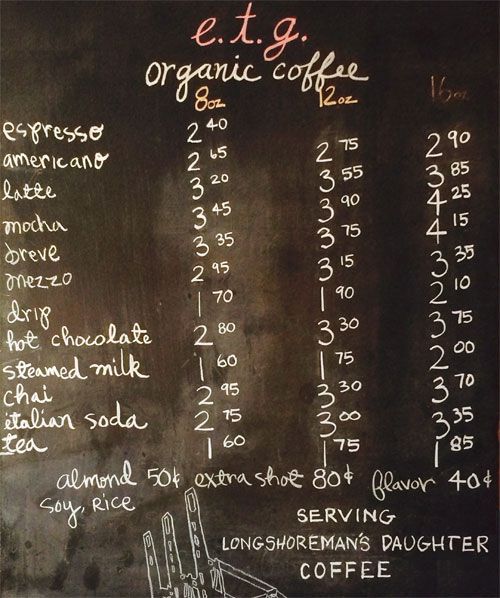 e.t.g.
organic coffee
8oz 12oz 16oz
espresso 2 40
americano 2 65 2 75 2 90
latte 3 20 3 55 3 85
mocha 3 45 3 90 4 25
breve 3 35 3 75 4 15
mezzo 2 95 3 15 3 35
drip 1 70 1 90 2 10
hot chocolate 2 80 3 30 3 75
steamed milk 1 60 1 75 2 00
chai 2 95 3 30 3 70
italian soda 2 75 3 00 3 35
tea 1 60 1 75 1 85
almond 50¢ extra shot 80¢ flavor 40¢
soy, RICE
SERVING
LONGSHOREMAN'S DAUGHTER
COFFEE